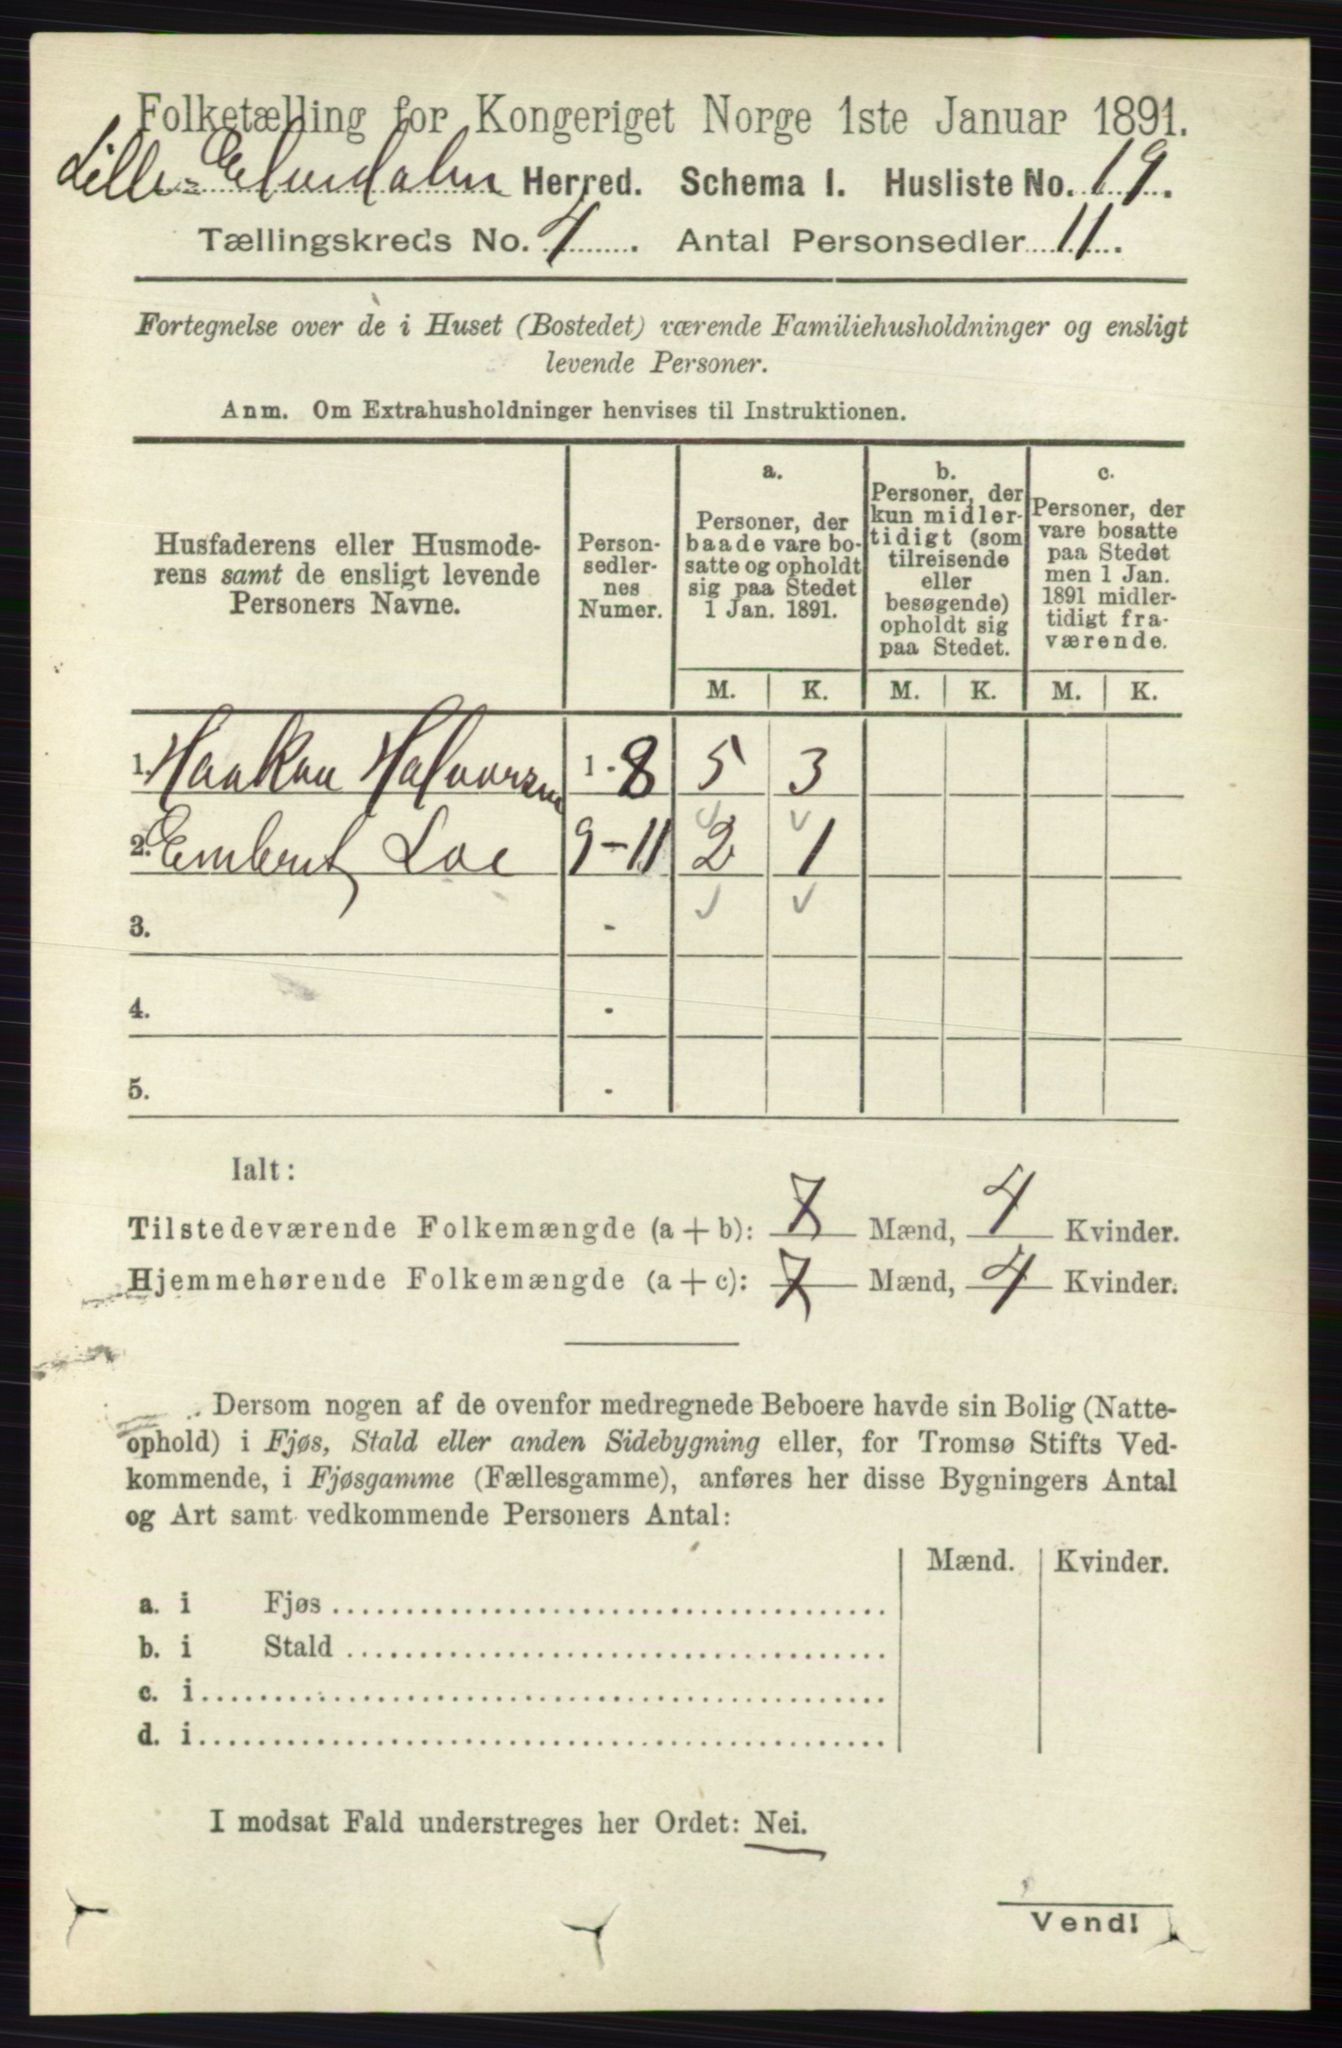 Folketælling for Kongeriget Norge 1ste Januar 1891.
Lille-Elvedalen Herred. Schema I. Husliste No. 19.
Tællingskreds No. 4. Antal Personsedler 11.
Fortegnelse over de i Huset (Bostedet) værende Familiehusholdninger og ensligt
levende Personer.
Anm. Om Extrahusholdninger henvises til Instruktionen.
Husfaderens eller Husmode-
rens samt de ensligt levende
Personers Navne.
Person-
sedler-
nes
Numer.
a.
Personer, der
baade vare bo-
satte og opholdt
sig paa Stedet
1 Jan. 1891.
b.
Personer, der
kun midler-
tidigt (som
tilreisende
eller
besøgende)
opholdt sig
paa Stedet.
c.
Personer, der
vare bosatte
paa Stedet
men 1 Jan.
1891 midler-
tidigt fra-
værende.
M. K. M. K. M. K.
1. Haakon Halvorsen 1 - 8 5 3
2. Embret Loe 9-11 2 1
3. -
4. -
5. -
Ialt:
Tilstedeværende Folkemængde (a + b): 7 Mænd, 4 Kvinder.
Hjemmehørende Folkemængde (a + c): 7 Mænd, 4 Kvinder.
Dersom nogen af de ovenfor medregnede Beboere havde sin Bolig (Natte-
ophold) i Fjøs, Stald eller anden Sidebygning eller, for Tromsø Stifts Ved-
kommende, i Fjøsgamme (Fællesgamme), anføres her disse Bygningers Antal
og Art samt vedkommende Personers Antal:
Mænd. Kvinder.
a. i Fjøs
b. i Stald
c. i
d. i
I modsat Fald understreges her Ordet: Nei.
Vend!